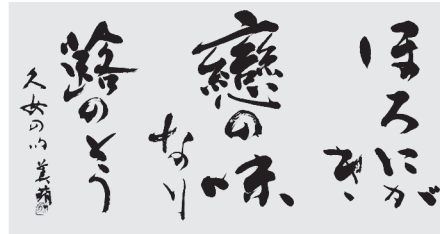 ほろにがき
戀の味なり
蕗のとう
久女の句 美